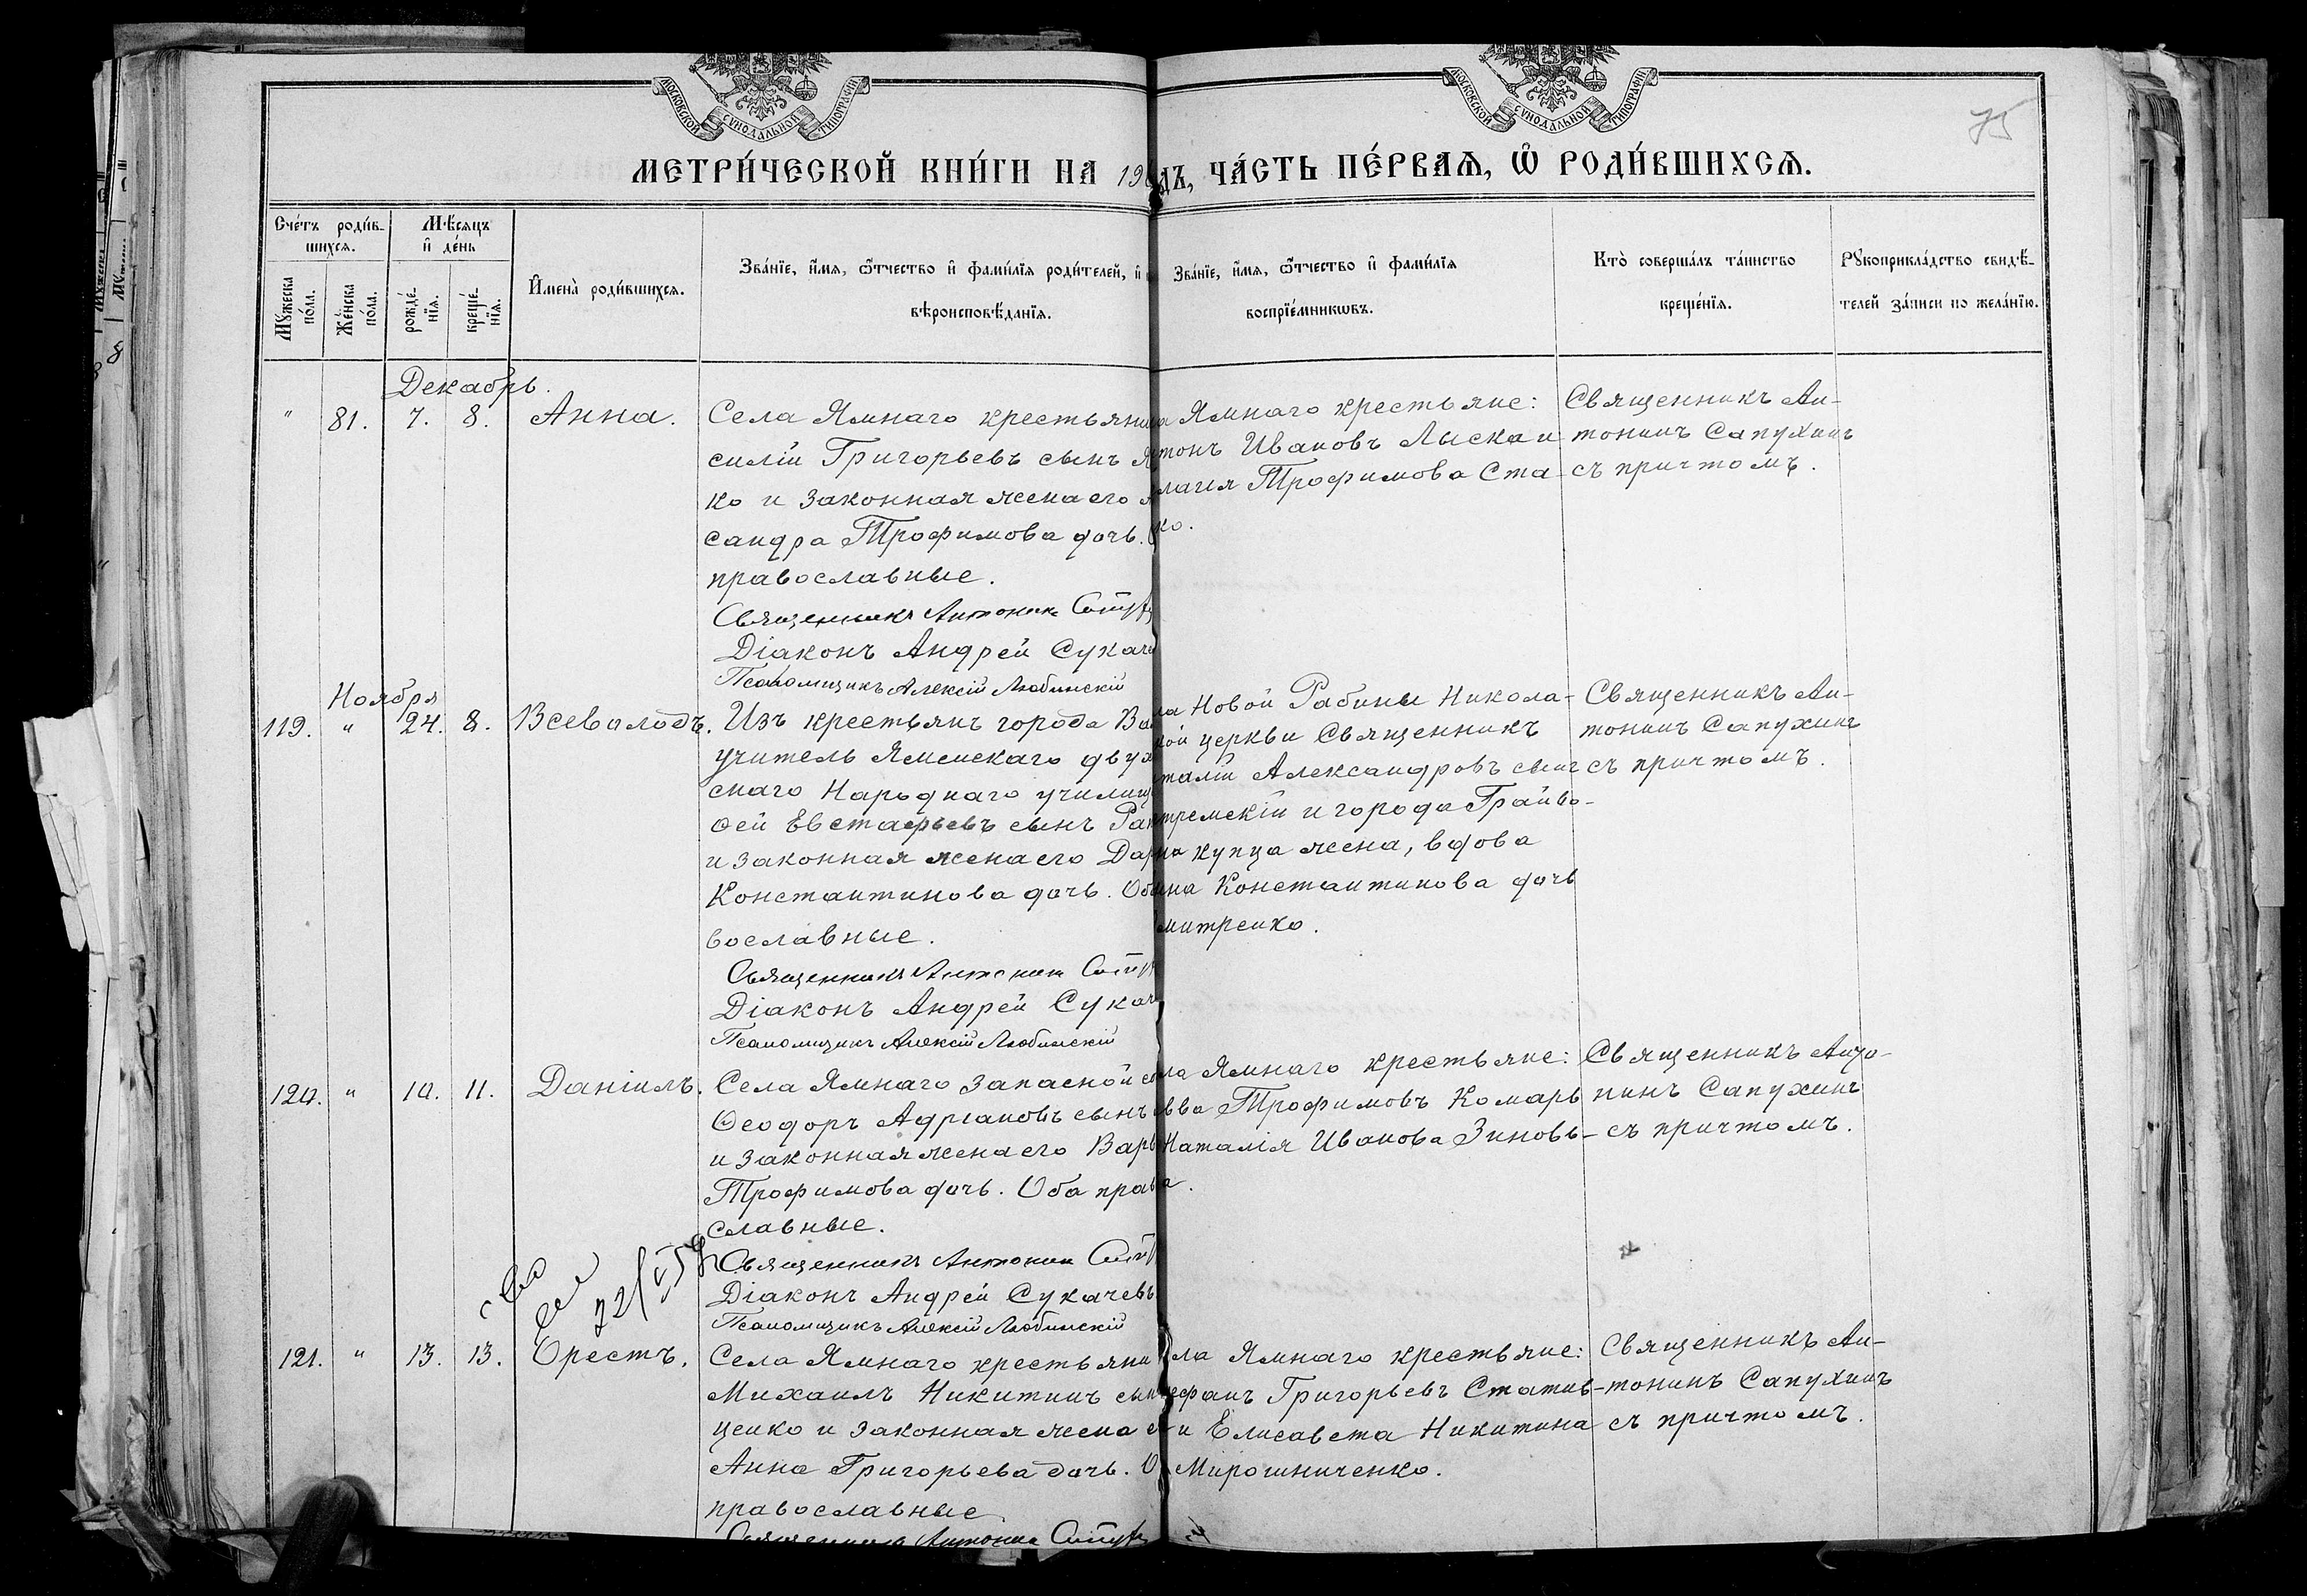 МОСКОВСКОЙ СѴНОДАЛЬНОЙ ТИПОГРАФІИ
МОСКОВСКОЙ СѴНОДАЛЬНОЙ ТИПОГРАФІИ
75
МЕТРИ́ЧЕСКОЙ КНИ́ГИ НА 19
ДЪ, ЧА́СТЬ ПЕ́РВАѦ, Ѡ РОДИ́ВШИХСѦ.
Сче́тъ роди́в-
шихсѧ.
Мꙋжеска по́ла.
Же́нска по́ла.
Мѣ́сѧцъ
и҆ де́нь
рожде́-
нїѧ.
креще́-
нїѧ.
И҆мена̀ роди́вшихсѧ.
Зва́нїе, и҆́мѧ, ѻ҆́тчество и҆ фами́лїѧ роди́телей, и҆
вѣроисповѣ́данїѧ.
Зва́нїе, и҆́мѧ, ѻ҆́тчество и҆ фами́лїѧ
воспрїе́мникѡвъ.
Кто̀ соверша́лъ та́инство
креще́нїѧ.
Рꙋкоприкла́дство свидѣ́-
телей за́писи по жела́нїю.
Декабрь.
" 81. 7. 8. Анна.
Села Ямнаго крестьянин
силій Григорьевъ сынъ
ко и законная жена его
сандра Трофимова дочь.
православные.
Священникъ Антонин
Діаконъ Андрей Сукач
Псаломщикъ Алексій Любинскій
Ямнаго крестьяне:
тонъ Ивановъ Лыска и
лагія Трофимова Ста-
ко.
Священникъ Ан-
тонинъ Сапухинъ
съ причтомъ.
Ноября
119. " 24. 8. Всеволодъ.
Изъ крестьянъ города Ва
учитель Яменскаго двух
снаго Народнаго училищ
ѳей Евстафьевъ сынъ
и законная жена его Дар
Константинова дочь. Об
вославные.
Священникъ Антонин
Діаконъ Андрей Сукач
Псаломщикъ Алексій Любинскій
ла Новой Рабины Никола-
кой церкви Священникъ
талій Александровъ сынъ
тремскій и города Грайво-
на купца жена, вдова
на Константинова дочь
митренко.
Священникъ Ан-
тонинъ Сапухинъ
съ причтомъ.
120. " 10. 11. Даніилъ.
Села Ямнаго запасной
Ѳеодоръ Адріановъ сынъ
и законная жена его Варв
Трофимова дочь. Оба прав
славные.
Священникъ Антонин
Діаконъ Андрей Сукачевъ
Псаломщикъ Алексій Любинскій
ла Ямнаго крестьяне:
вва Трофимовъ Комарь
Наталія Иванова Зиновь-
а.
Священникъ Анто-
нинъ Сапухинъ
съ причтомъ.
121. " 13. 13. Орестъ.
Села Ямнаго крестьяни
Михаилъ Никитинъ сын
ценко и законная жена
Анна Григорьева дочь. О
православные
Священникъ Антонин
ла Ямнаго крестьяне:
ефанъ Григорьевъ Статив-
и Елисавета Никитина
Мирошниченко.
Священникъ Ан-
тонинъ Сапухинъ
съ причтомъ.